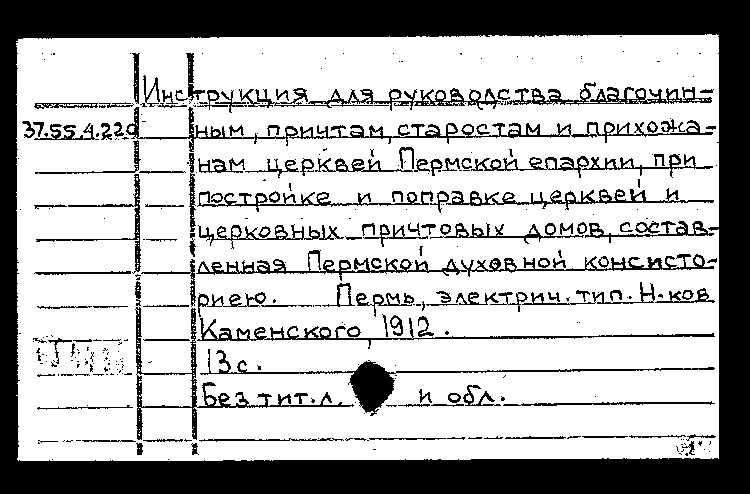 Инструкция для руководства благочин-
37.55.4.220 ным, причтам, старостам и прихожа-
нам церквей Пермской епархии, при
постройке и поправке церквей и
церковных причтовых домов, состав-
ленная Пермской духовной консисто-
риею. Пермь, электрич. тип. Н-ков
Каменского, 1912.
13 с.
Без тит. л. и обл.